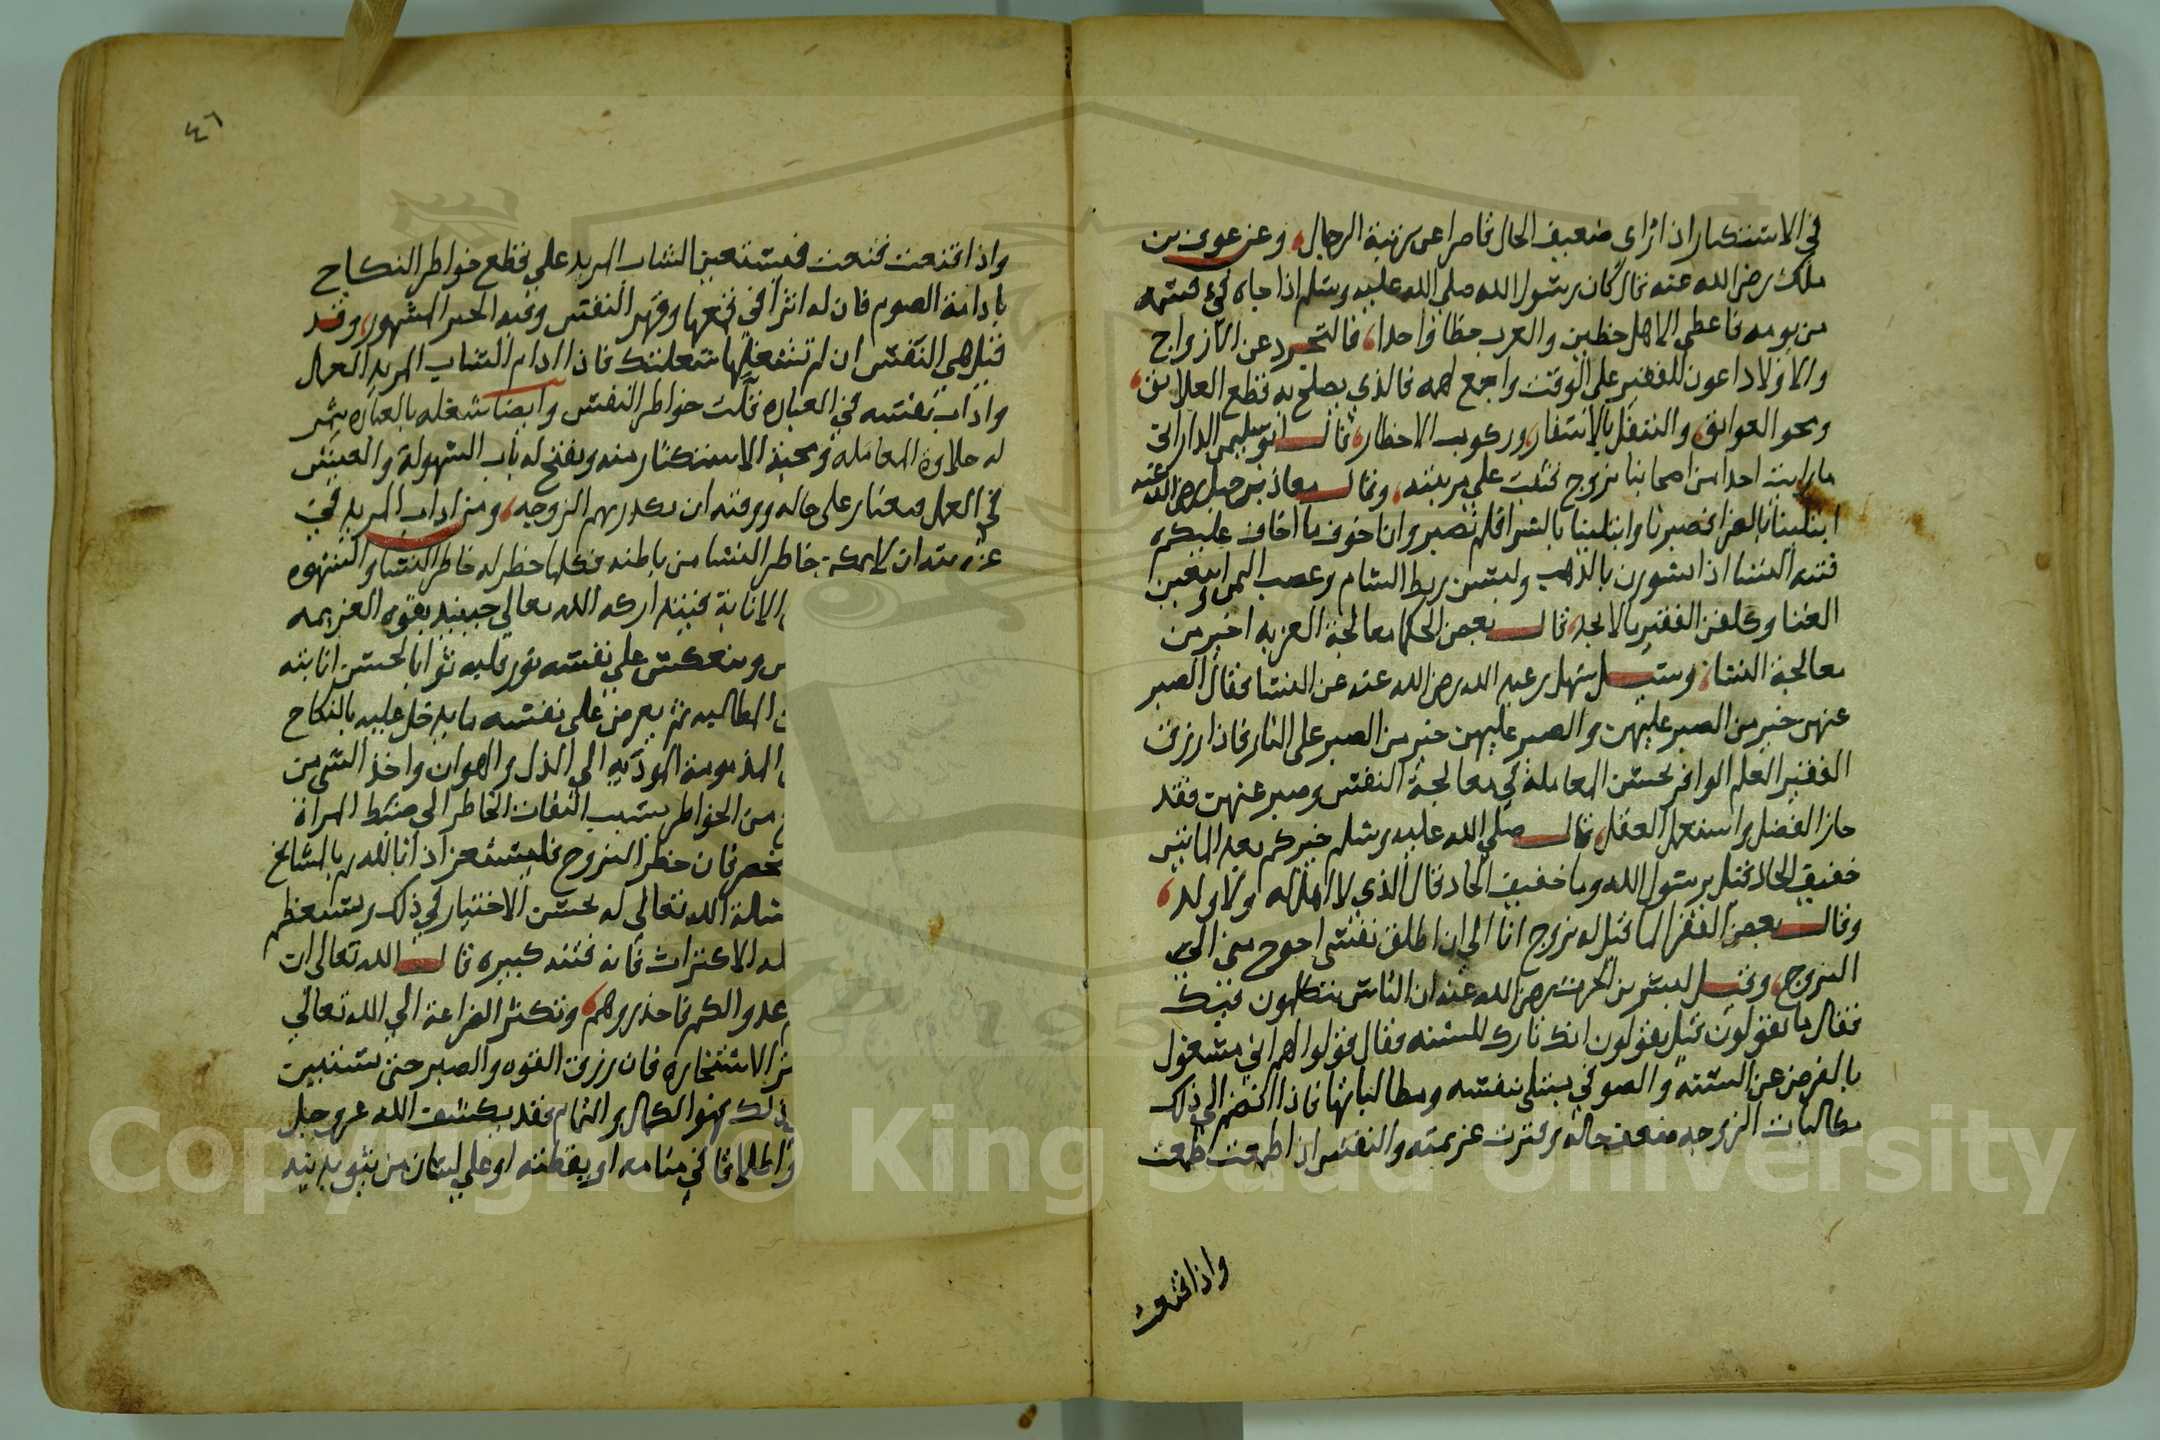 في الاستكبار اذا رأى ضعيف الحال قاصرا عن رتبة الرجال، وعن عوف بن
ملك رضى الله عنه قال كان رسول الله صلى الله عليه وسلم اذا جاه فئ قسمه
من يومه فاعطى الاهل حظين والعرب حظا واحدا، فالتجرد عن الازواج
والاولاد اعون للفقير على الوقت واجمع لهمه فالذي يصلح به قطع العلايق،
ومحو العوايق، والتنقل بالاسفار، وركوب الاخطار، قال ابو سليمن الداراني
ما رايت احدا من اصحابنا تزوج فثبت على مرتبته، وقال معاذ بن جبل رضى الله عنه
ابتلينا بالضرا فصبرنا وابتلينا بالسرا فلم نصبر وان اخوف ما اخاف عليكم
فتنه النسا اذا تسورن بالذهب ولبسن ريط الشام وعصب اليمن واتعبن
الغنا وكلفن الفقير ما لا يجد، قال بعض الحكما معالجة العزبه اخير من
معالجة النسا، وسئل سهل بن عبد الله رضى الله عنه عن النسا فقال الصبر
عنهن خير من الصبر عليهن والصبر عليهن خير من الصبر على النار فاذا رزق
الفقير العلم الوافر بحسن المعاملة في معالجة النفس وصبر عنهن فقد
حاز الفضل واستعمل العقل، قال صلى الله عليه وسلم خيركم بعد المايتين
خفيف الحاذ قيل يرسول الله وما خفيف الحاذ قال الذي لا اهل له ولا ولد،
وقال بعض الفقرا لما قيل له تزوج انا الى ان اطلق نفسى احوج منى الى
التزوج، وقيل لبشر بن الحرث رضى الله عنه ان الناس يتكلمون فيك
فقال ما يقولون قيل يقولون انك تارك للسنه فقال قولوا لهم انى مشغول
بالفرض عن السنة والصوفي يبتلى بنفسه ومطالباتها فاذا انضم الى ذلك
مطالبات الزوجه ضعف حاله وفترت عزيمته والنفس اذا اطمعت طمعت
واذا قنعت
٤٦
واذا قنعت قنعت فيستعين الشاب المريد على قطع خواطر النكاح
بادامة الصوم فان له اثرا في قمعها وقهر النفس وفيه الخبر المشهور، وقد
قيل هى النفس ان لم تشغلها شغلتك فاذا ادام الشاب المريد العمل
واداب نفسه في العباده قلت خواطر النفس وايضا شغله بالعباده يثمر
له حلاوة المعاملة ومحبة الاستكثار منه ويفتح له باب السهولة والعيش
في العمل فيغار على حاله ووقته ان يكدر بهم الزوجيه، ومن اداب المريد في
عزوبته ان لا يمكن خاطر النسا من باطنه فكلما خطر له خاطر النسا والشهوه
الانابة فيتداركه الله تعالى حينيذ بقوه العزيمه
وينعكس على نفسه نور قلبه ثوابا لحسن انابته
المطالبه ثم يعرض على نفسه ما يدخل عليه بالنكاح
المذمومة الموديه الى الذل والهوان واخذ الشى من
من الخواطر بسبب التفات الخاطر الى ضبط المراة
فان خطر التزوج فليستعن اذ انالله بالمشايخ
الله تعالى له بحسن الاختيار في ذلك ويستعظم
الاكتراث فانه فتنه كبيره قال الله تعالى ان
عدوا لكم فاحذروهم، وتكثر الضراعة الى الله تعالى
الاستخاره فان رزق القوه والصبر حتى يستبين
ذلك فهو الكمال والتمام فقد يكشف الله عز وجل
اطلاقا في منامه او يقظته او على لسان من يثق بدينه